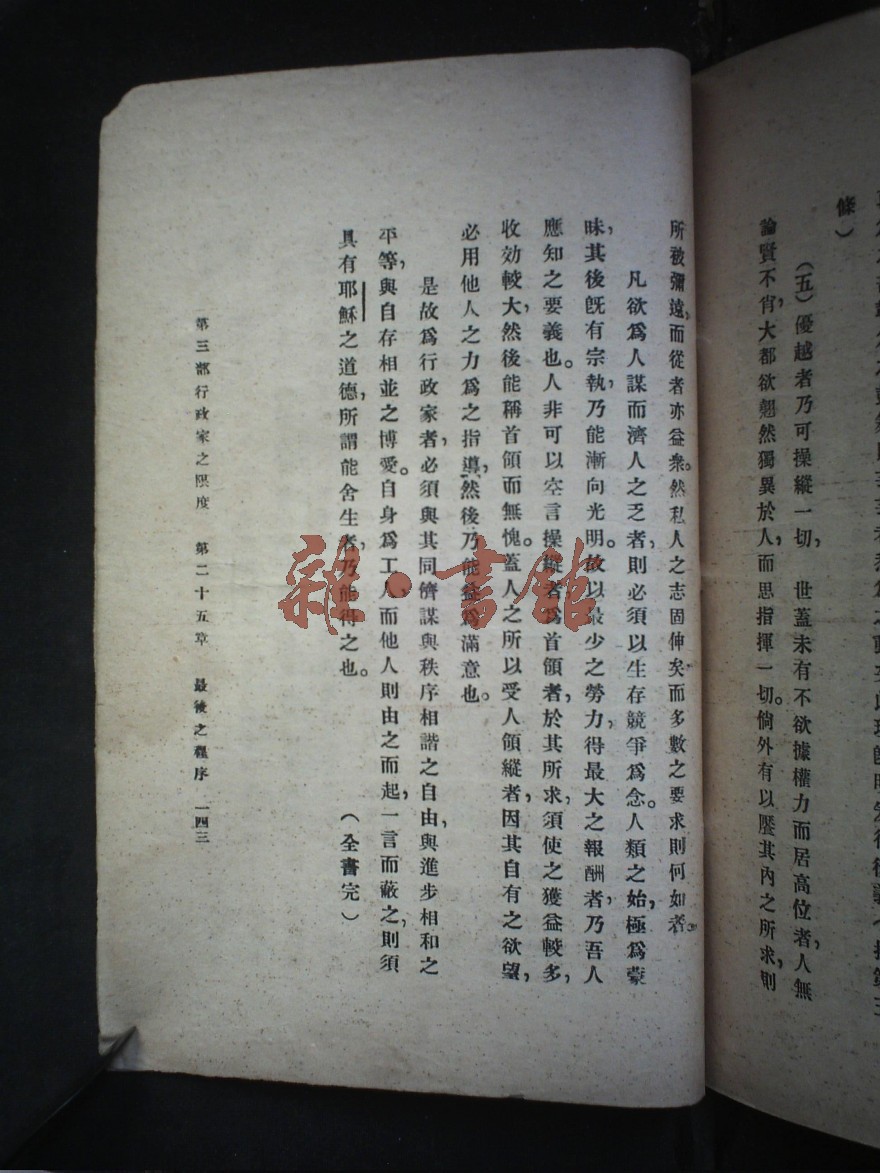 條）
（五）優越者乃可操縱一切，　世蓋未有不欲據權力而居高位者，人無
論賢不肖，大都欲翹然獨異於人，而思指揮一切。倘外有以饜其內之所求，則
所被彌遠，而從者亦益衆。然私人之志固伸矣，而多數之要求則何如者。
凡欲爲人謀而濟人之乏者，則必須以生存競爭爲念。人類之始，極爲蒙
昧，其後旣有宗執，乃能漸向光明。故以最少之勞力，得最大之報酬者，乃吾人
應知之要義也。人非可以空言操縱者，爲首領者，於其所求，須使之獲益較多，
收効較大，然後能稱首領而無愧。蓋人之所以受人領縱者，因其自有之欲望，
必用他人之力爲之指導，然後乃能益爲滿意也。
是故爲行政家者，必須與其同儕謀與秩序相諧之自由，與進步相和之
平等，與自存相並之博愛。自身爲工人，而他人則由之而起，一言而蔽之，則須
具有耶穌之道德，所謂能舍生者，乃能得之也。
（全書完）
第三部行政家之限度　第二十五章　最後之程序　一四三
雜·書館